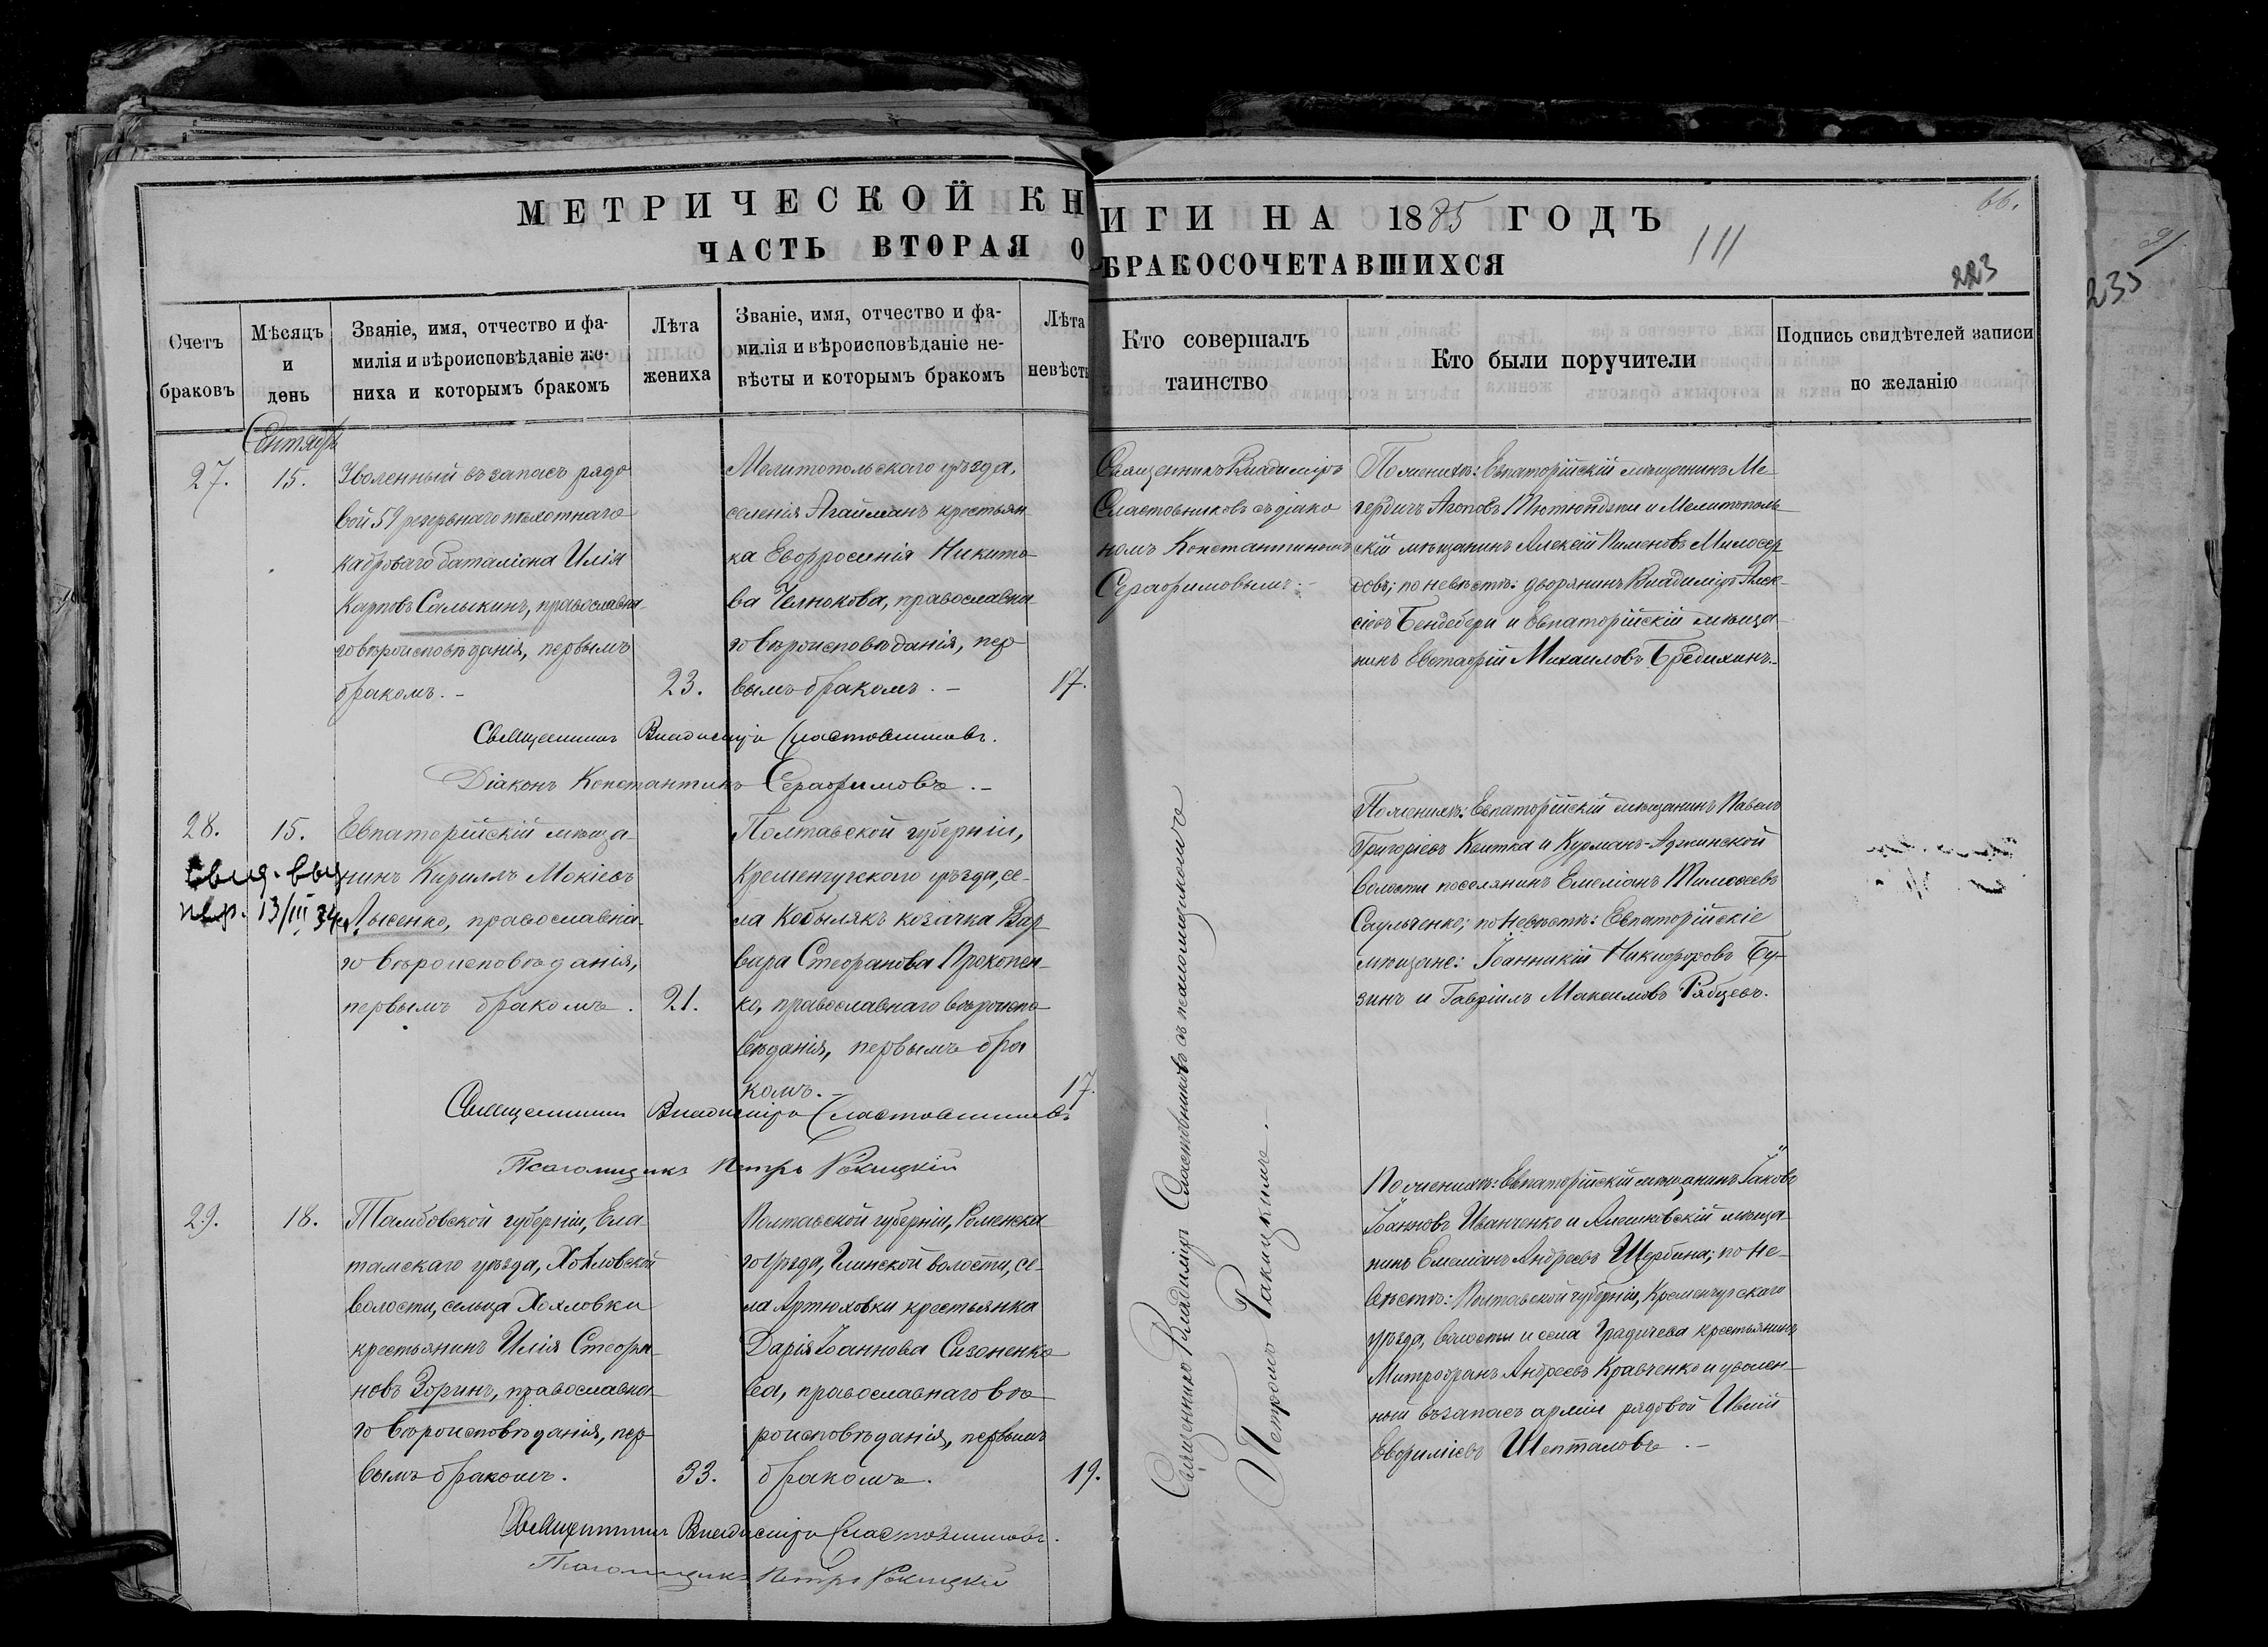 МЕТРИЧЕСКОЙ КНИГИ НА 1885 ГОДЪ
ЧАСТЬ ВТОРАЯ О БРАКОСОЧЕТАВШИХСЯ
111
66.
223
235
Счетъ браковъ
Мѣсяцъ и день
Званіе, имя, отчество и фа-
милія и вѣроисповѣданіе же-
ниха и которымъ бракомъ
Лѣта жениха
Званіе, имя, отчество и фа-
милія и вѣроисповѣданіе не-
вѣсты и которымъ бракомъ
Лѣта невѣсты
Кто совершалъ
таинство
Кто были поручители
Подпись свидѣтелей записи
по желанію
Сентябрь
27.
15.
Уволенный въ запасъ рядо
вой 59 резервнаго пѣхотнаго
кадроваго баталіона Илія
Карповъ Салыкинъ, православна-
го вѣроисповѣданія, первымъ
бракомъ. -
23.
Мелитопольскаго уѣзда,
селенія Агайманъ крестьян
ка Евфросинія Никито-
ва Челнокова, православна-
го вѣроисповѣданія, пер-
вымъ бракомъ. -
17.
Священникъ Владиміръ
Сластовниковъ съ діако
номъ Константиномъ
Серафимовымъ. -
По женихѣ: Евпаторійскій мѣщанинъ Ме-
гердичъ Агоповъ Тютюнджи и Мелитополь-
скій мѣщанинъ Алексій Пименовъ Милосер
довъ; по невѣстѣ: дворянинъ Владиміръ Алек-
сіевъ Бендебери и Евпаторійскій мѣща-
нинъ Евстафій Михаиловъ Бредихинъ.
Священникъ Владиміръ Сластовниковъ.
Діаконъ Константинъ Серафимовъ. -
28.
15.
Свид. выд
13/III 34
Евпаторійскій мѣща-
нинъ Кириллъ Мокіевъ
Лысенко, православна-
го вѣроисповѣданія,
первымъ бракомъ.
21.
Полтавской губерніи,
Кременчугскаго уѣзда, се-
ла Кобылякъ козачка Вар
вара Стефанова Прокопен-
ко, православнаго вѣроиспо
вѣданія, первымъ бра
комъ. -
17.
Священникъ Владиміръ Сластовниковъ съ псаломщикомъ
Петромъ Ракицкимъ.
По женихѣ: Евпаторійскій мѣщанинъ Павелъ
Григоріевъ Квитка и Курманъ-Аджинской
волости поселянинъ Емеліанъ Тимофеевъ
Саульченко; по невѣстѣ: Евпаторійскіе
мѣщане: Іоанникій Никифоровъ Бу-
зинъ и Гавріилъ Максимовъ Рябцевъ.
Священникъ Владиміръ Сластовниковъ
Псаломщикъ Петръ Ракицкій
29.
18.
Тамбовской губерніи, Ела-
томскаго уѣзда, Хохловской
волости, сельца Хохловки
крестьянинъ Илія Стефа-
новъ Зоринъ, православна-
го вѣроисповѣданія, пер-
вымъ бракомъ.
33.
Полтавской губерніи, Роменска-
го уѣзда, Глинской волости, се-
ла Артюховки крестьянка
Дарія Іоаннова Сизоненко
ва, православнаго вѣ-
роисповѣданія, первымъ
бракомъ.
19.
По женихѣ: Евпаторійскій мѣщанинъ Іаковъ
Іоанновъ Иванченко и Алешковскій мѣща-
нинъ Емеліанъ Андреевъ Щербина; по не-
вѣстѣ: Полтавской губерніи, Кременчугскаго
уѣзда, волости и села Градичева крестьянинъ
Митрофанъ Андреевъ Кравченко и уволен-
ный въ запасъ арміи рядовой
Евфиміевъ Шепталовъ. -
Священникъ Владиміръ Сластовниковъ.
Псаломщикъ Петръ Ракицкій